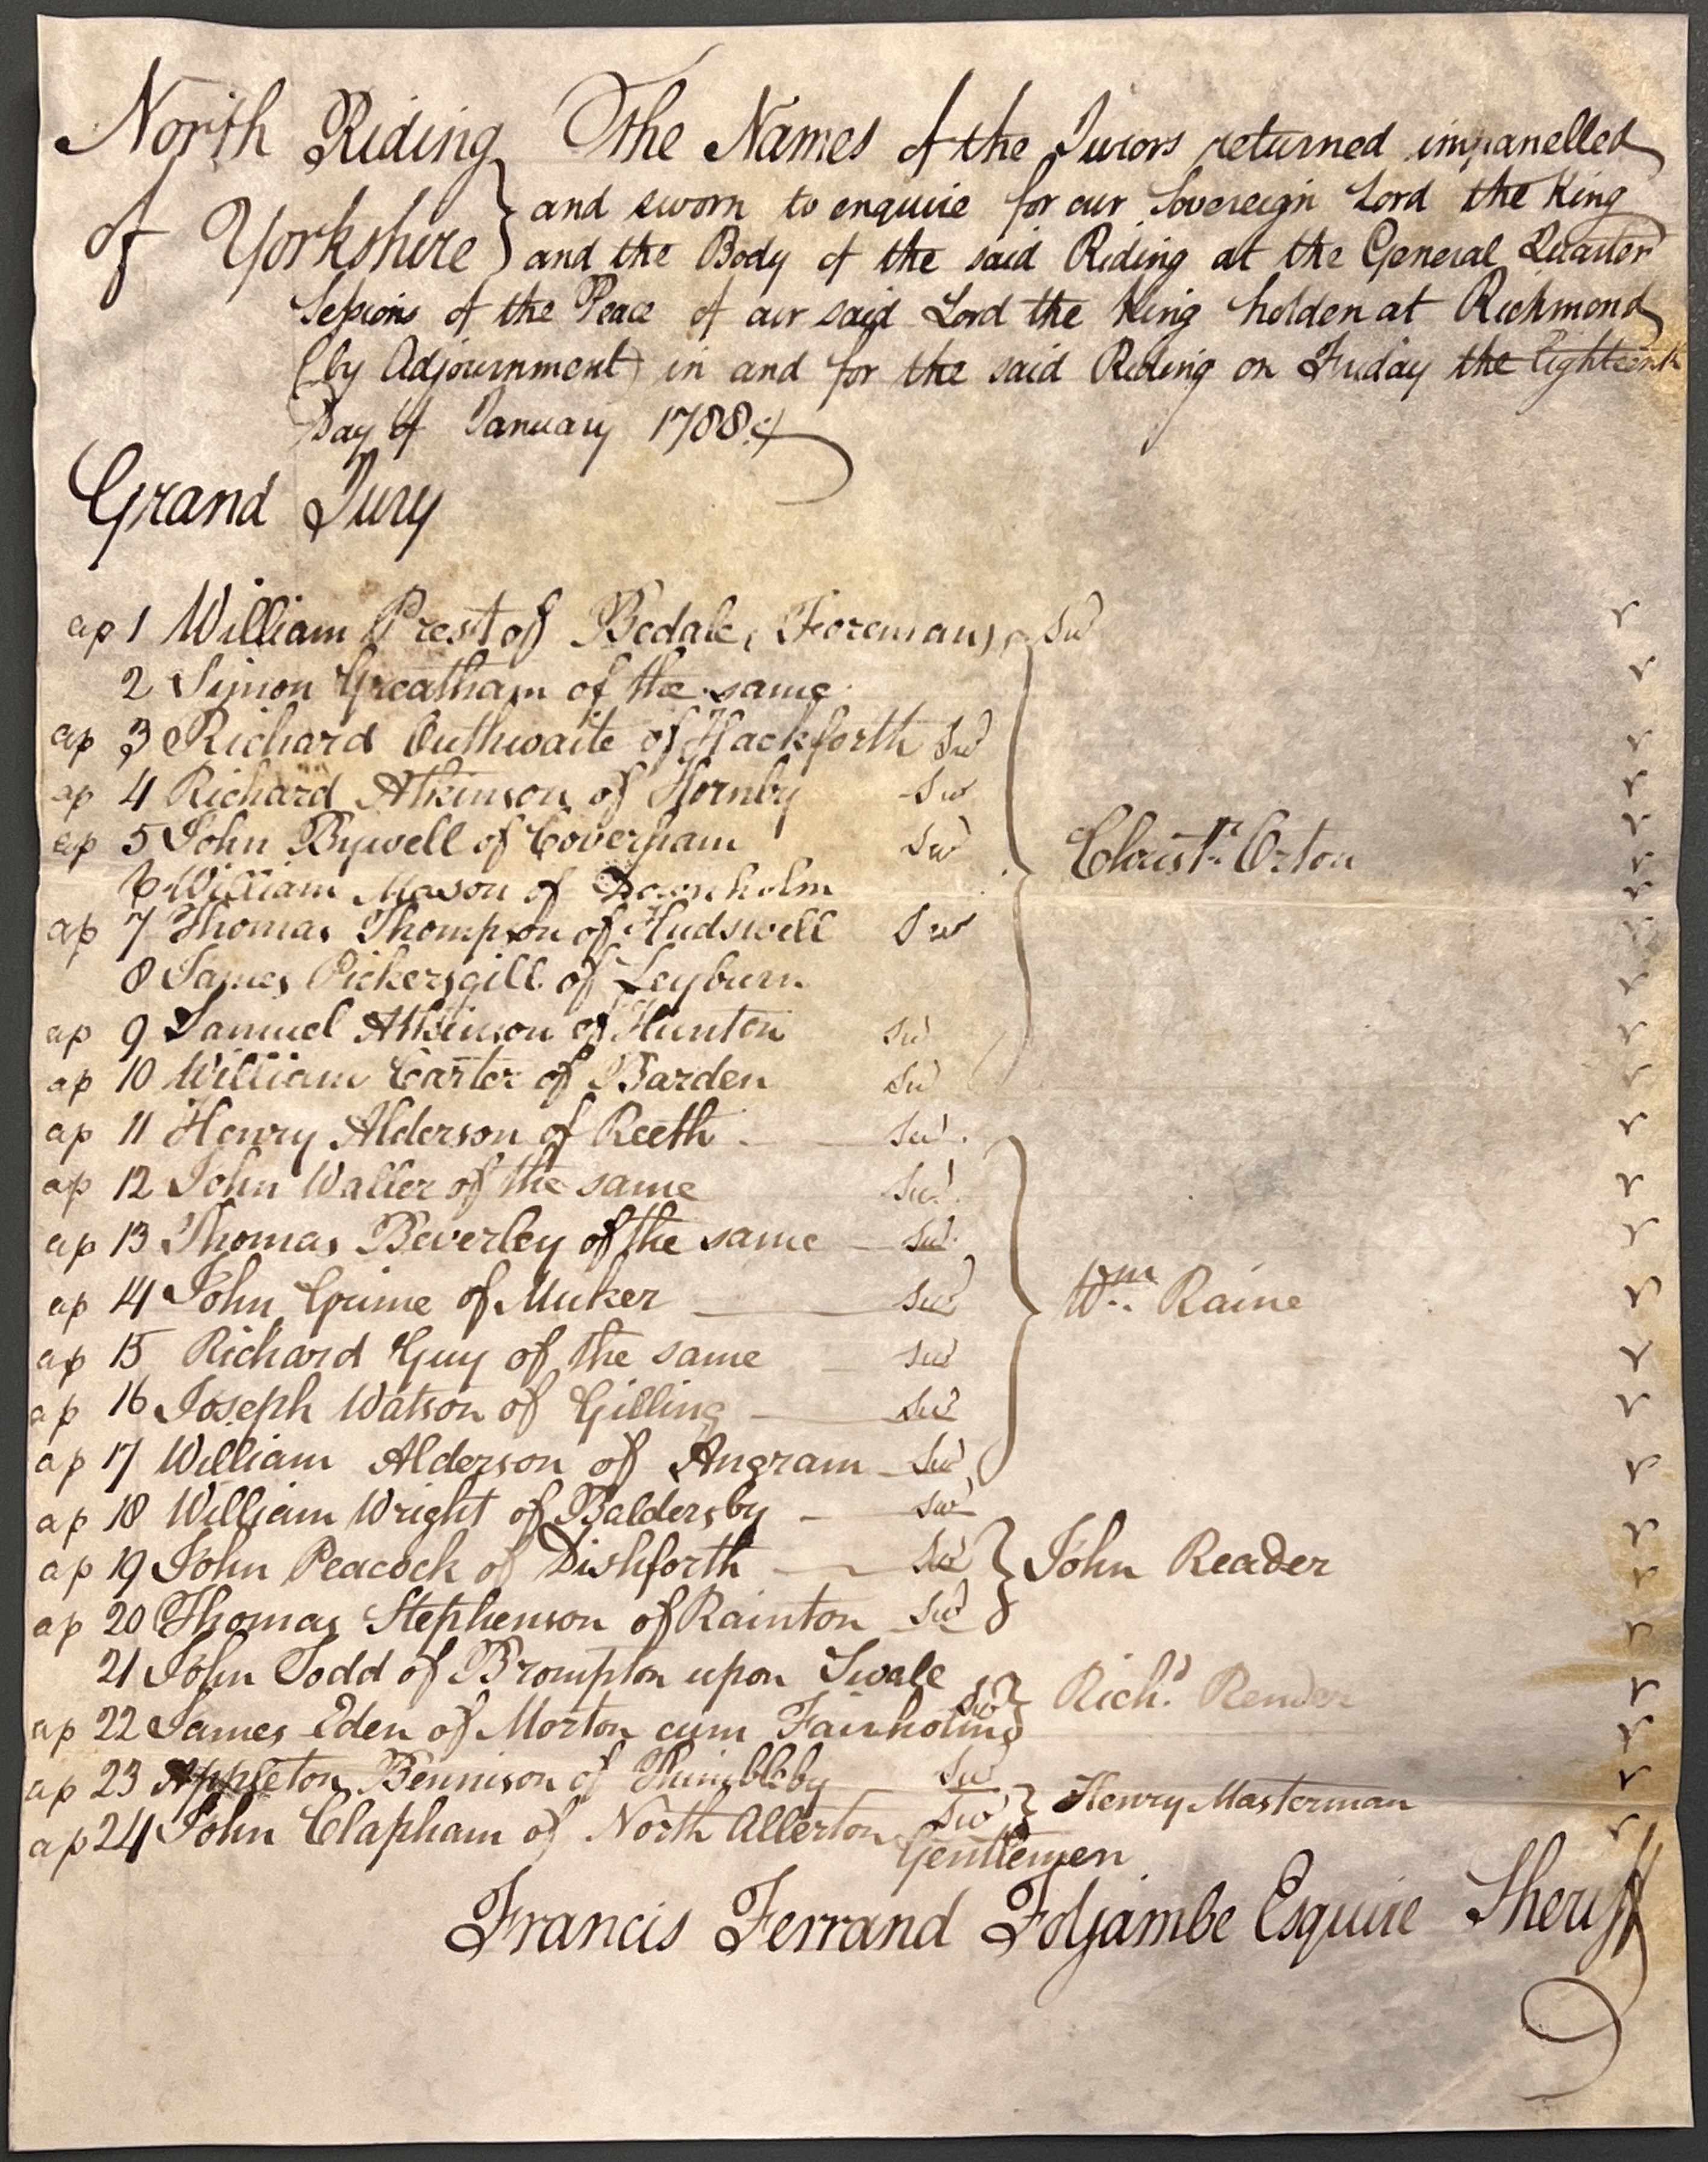 North Riding of Yorkshire } The Names of the Jurors returned impanelled
and sworn to enquire for our Sovereign Lord the King
and the Body of the said Riding at the General Quarter
Sessions of the Peace of our said Lord the King holden at Richmond
(by Adjournment) in and for the said Riding on Friday the Eighteenth
Day of January 1788.
Grand Jury
ap 1 William Prest of Bedale, (Foreman) Sw
2 Simon Greatham of the same
ap 3 Richard Outhwaite of Hackforth Sw
ap 4 Richard Atkinson of Hornby Sw
ap 5 John Bywell of Coverham Sw
Christr. Orton
6 William Mason of Downholm
ap 7 Thomas Thompson of Hudswell Sw
8 James Pickersgill of Leyburn
ap 9 Samuel Atkinson of Hunton Sw
ap 10 William Carter of Barden Sw
ap 11 Henry Alderson of Reeth Sw
ap 12 John Waller of the same Sw
ap 13 Thomas Beverley of the same Sw
ap 14 John Grime of Muker Sw
Wm. Raine
ap 15 Richard Guy of the same Sw
ap 16 Joseph Watson of Gilling Sw
ap 17 William Alderson of Angram Sw
ap 18 William Wright of Baldersby Sw
ap 19 John Peacock of Dishforth Sw } John Reader
ap 20 Thomas Stephenson of Rainton Sw
21 John Todd of Brompton upon Swale
Richd. Render
ap 22 James Eden of Morton cum Fairholm Sw
ap 23 Appleton Bennison of Thimbleby Sw
ap 24 John Clapham of North Allerton Sw } Henry Masterman
Gentlemen
Francis Ferrand Foljambe Esquire Sheriff